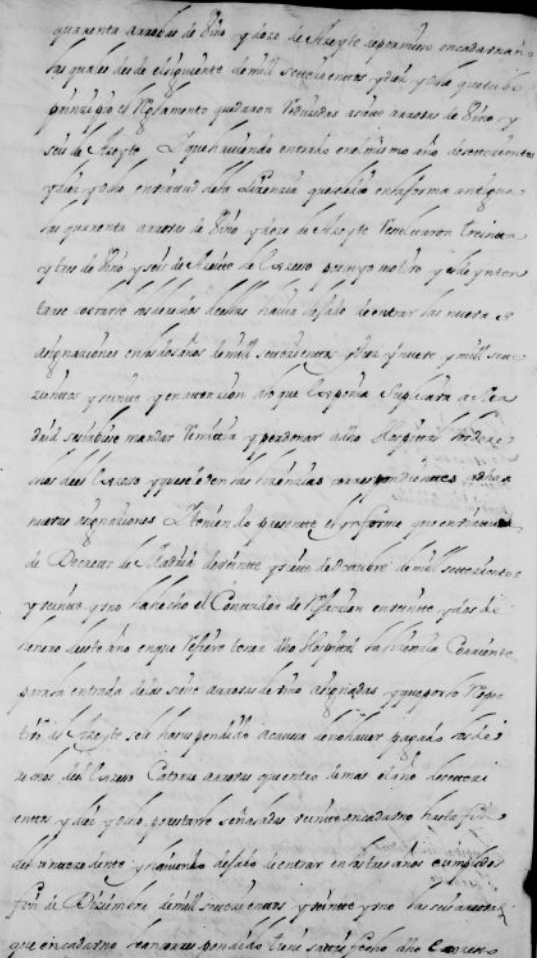 quarenta arrobas de Vino y doze de Azeyte de permiso en cada un año
las quales desde el siguiente de mill setecientos y diez y ocho que tubo
principio el Reglamento quedaron reduzidas a siete arrobas de Vino y
seis de Azeyte I que haviendo entrado en el mismo año de setecientos
y diez y ocho en virtud de la Lizenzia que en la forma antigua
las quarenta arrobas de Vino y doze de Azeyte resultaron treinta
y tres de Vino y seis de Azeite de Exzeso por cuyo motivo y el de ynten
tarse cobrarle los derechos de ellas havia dejado de entrar las nuevas
asignaziones en los dos años de mill setecientos y diez y nueve y mill sete
zientos y veinte y en atenzion a lo que Exponia Suplicava a Su Ma
se mandar Remitir y perdonar a dho Hospital los dere
chos del Exzeso y que se den las lizenzias correspondientes a dhas
nuevas asignaziones I teniendo presente el ynforme que en virtud
de Decreto de Madrid de veinte y siete de Octubre de mill setecientos
y veinte y uno ha hecho el Contador de Relazion en veinte y dos de
henero deste año en que refiere tener dho Hospital la lizenzia Corriente
para la entrada de las siete arrobas de vino asignadas y que por lo Respe
tivo al Azeyte se le ha suspendido a causa de no haver pagado los de
rechos del Exzeso Catorze arrobas que entro demas el año de seteci
entos y diez y ocho por estarle señaladas veinte en cada uno hasta fin
del antezedente y haviendo dejado de entrar en los tres años cumplidos
fin de Diziembre de mill setecientos y veinte y uno las seis arrobas
que en cada uno han correspondido tiene satisfecho dho Exzeso